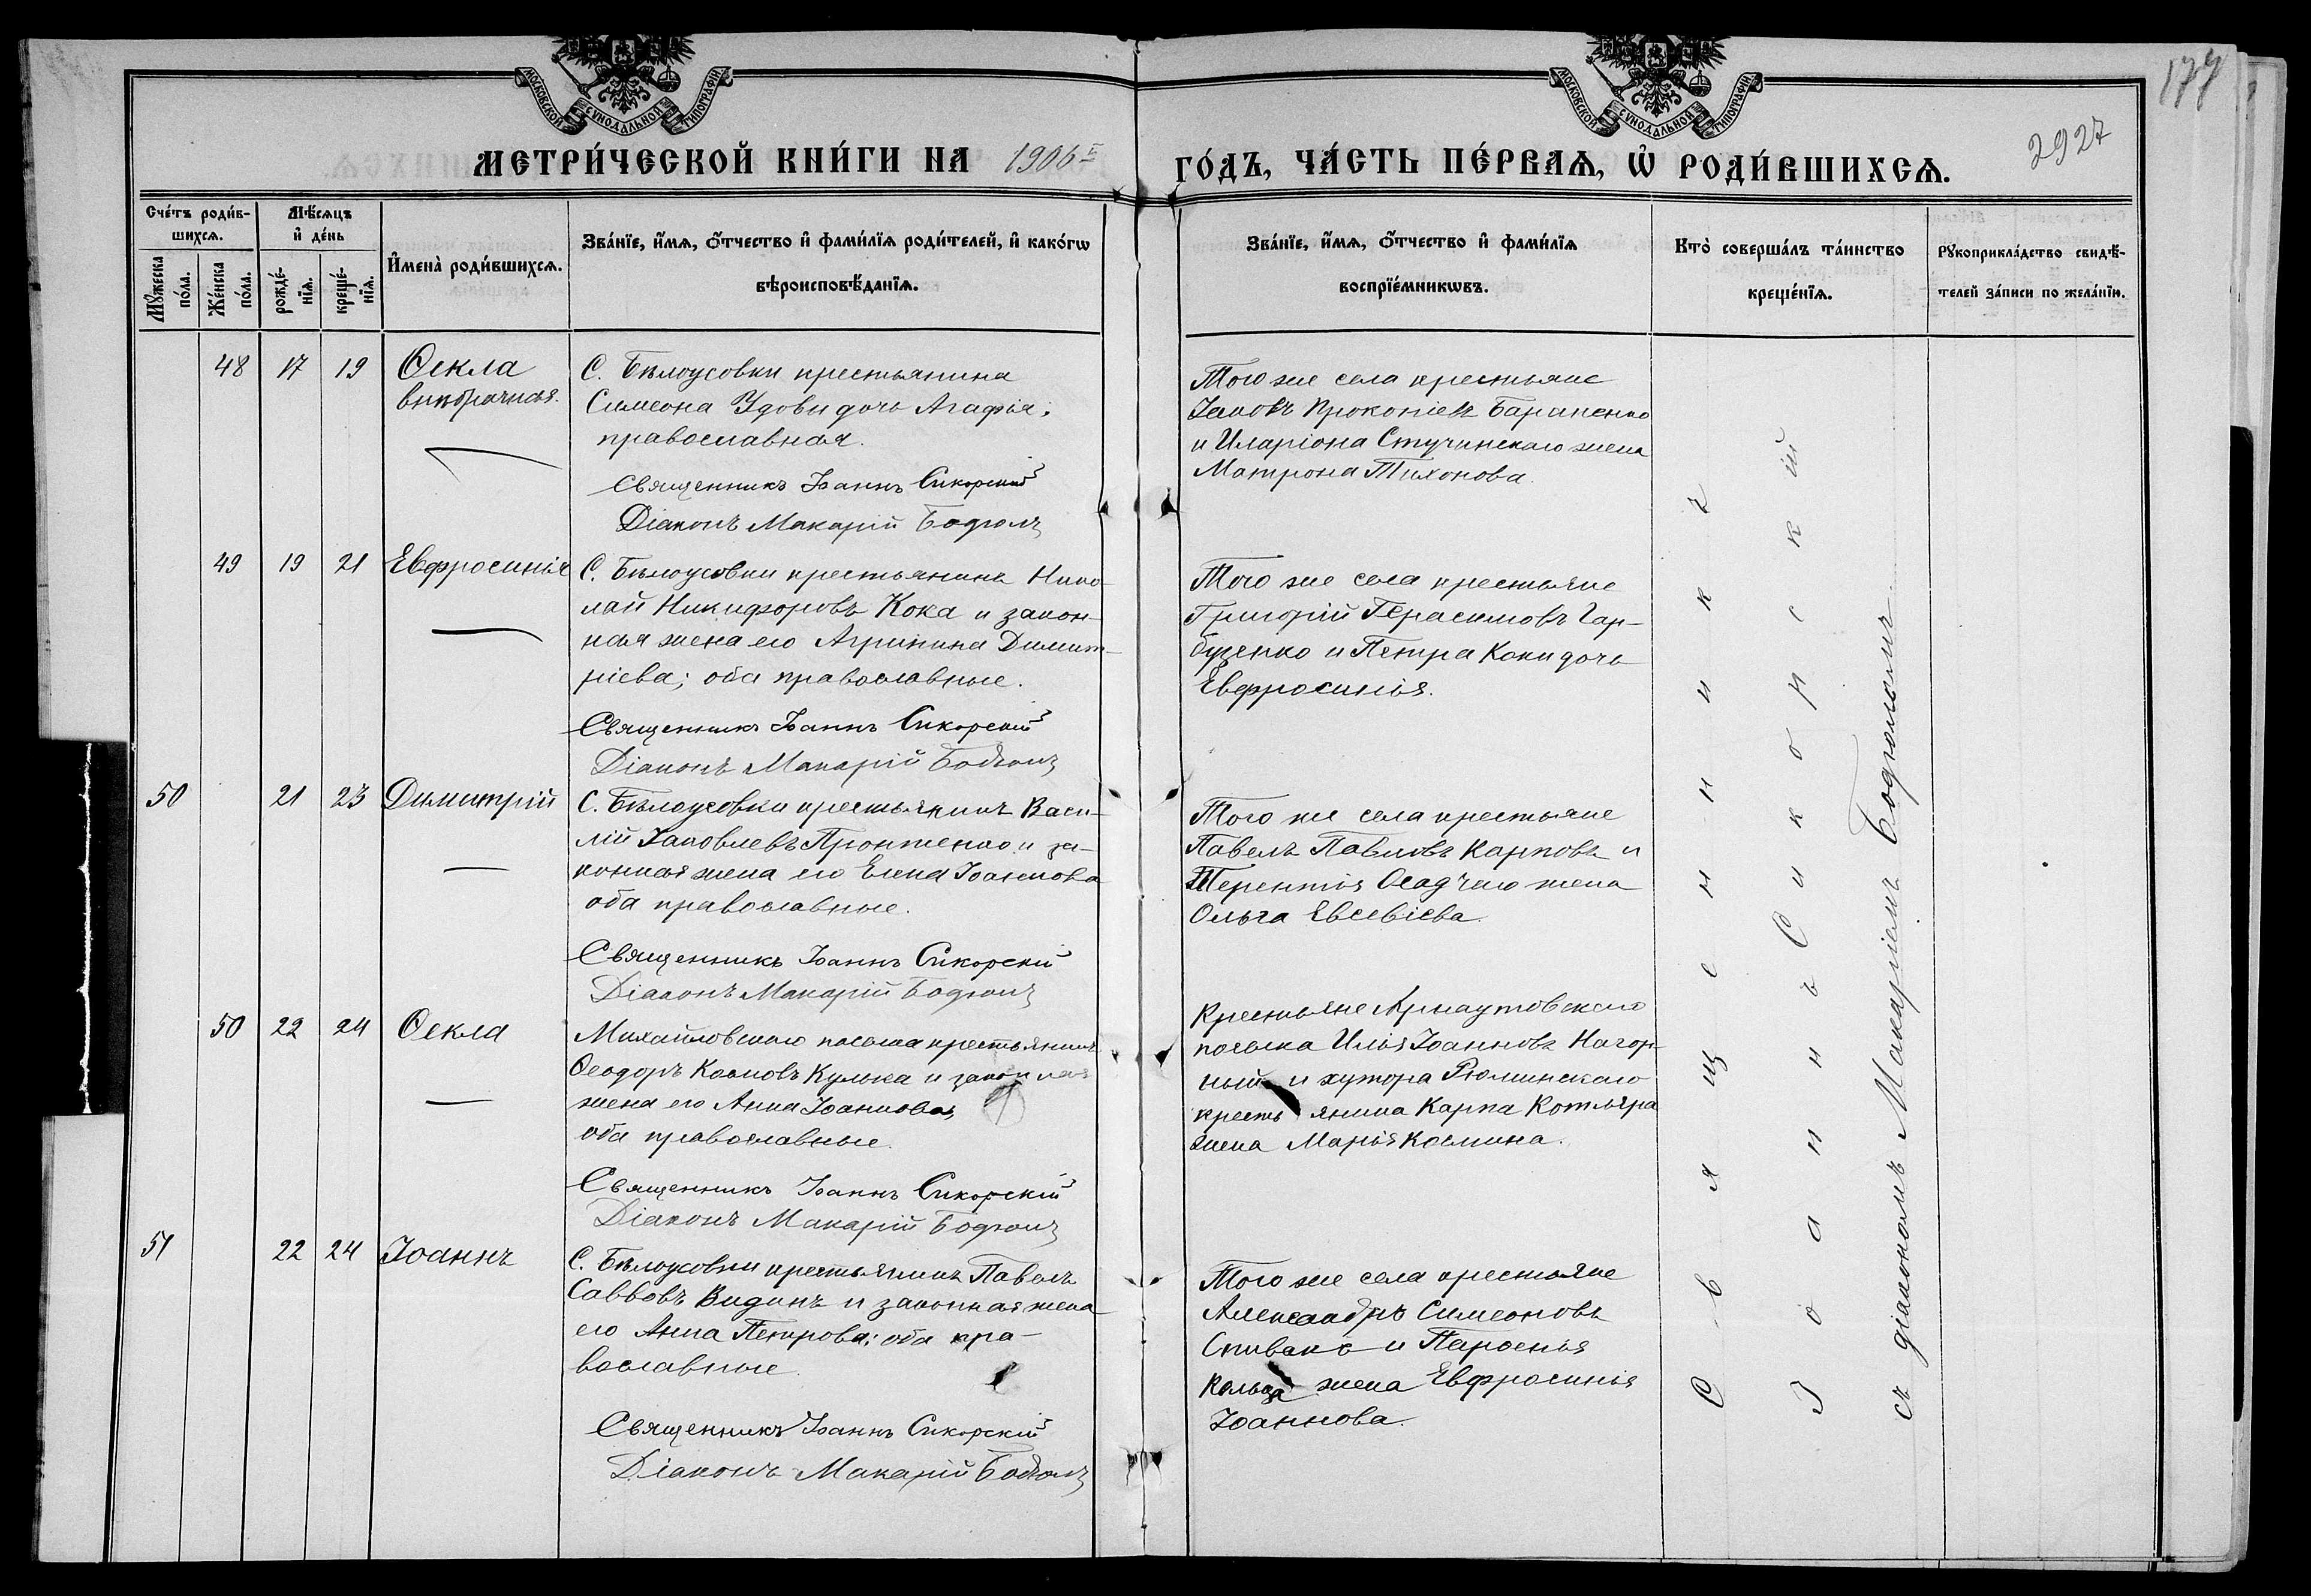 МОСКОВСКОЙ СѴНОДАЛЬНОЙ ТИПОГРАФІИ
МОСКОВСКОЙ СѴНОДАЛЬНОЙ ТИПОГРАФІИ
177
2927
МЕТРИ́ЧЕСКОЙ КНИ́ГИ НА 1906
ГО́ДЪ, ЧА́СТЬ ПЕ́РВАѦ, Ѡ҆ РОДИ́ВШИХСѦ.
Сче́тъ роди́в-
шихсѧ.
Мꙋ́жеска по́ла.
Же́нска по́ла.
Мѣ́сѧцъ
и҆ де́нь
рожде́-
нїѧ.
креще́-
нїѧ.
И҆мена̀ роди́вшихсѧ.
Зва́нїе, и҆́мѧ, ѻ҆́тчество и҆ фами́лїѧ роди́телей, и҆ како́гѡ
вѣроисповѣ́данїѧ.
Зва́нїе, и҆́мѧ, ѻ҆́тчество и҆ фами́лїѧ
воспрїе́мникѡвъ.
Кто̀ соверша́лъ та́инство
креще́нїѧ.
Рꙋкоприкла́дство свидѣ́-
телей за́писи по жела́нїю.
48 17 19 Ѳекла
внѣбрачная.
С. Бѣлоусовки крестьянина
Симеона Удови дочь Агафія;
православная.
Священникъ Іоаннъ Сикорскій
Діаконъ Макарій Бодюлъ
Того же села крестьяне
Іаковъ Прокопіевъ Бараненко
и Иларіона Стучинскаго жена
Матрона Тихонова.
49 19 21 Евфросинія
С. Бѣлоусовки крестьянинъ Нико-
лай Никифоровъ Кока и закон-
ная жена его Агрипина Димит-
ріева; оба православные.
Священникъ Іоаннъ Сикорскій
Діаконъ Макарій Бодюлъ
Того же села крестьяне
Григорій Герасимовъ Гар-
бузенко и Петра Коки дочь
Евфросинія.
50 21 23 Димитрій
С. Бѣлоусовки крестьянинъ Васи-
лій Іаковлевъ и за-
конная жена его Елена Іоаннова
оба православные.
Священникъ Іоаннъ Сикорскій
Діаконъ Макарій Бодюлъ
Того же села крестьяне
Павелъ Павловъ Карповъ и
Терентія Осадчаго жена
Ольга Евсевіева.
50 22 24 Ѳекла
Михайловскаго поселка крестьянинъ
Ѳеодоръ Космовъ Кулька и законная
жена его Анна Іоаннова,
оба православные.
Священникъ Іоаннъ Сикорскій
Діаконъ Макарій Бодюлъ
Крестьяне Арнаутовскаго
поселка Илія Іоанновъ Нагор-
ный и хутора Рюминскаго
крестьянина Карпа Котляра
жена Марія Космина.
51 22 24 Іоаннъ
С. Бѣлоусовки крестьянинъ Павелъ
Савовъ Видинъ и законная жена
его Анна Петрова; оба пра-
вославные.
Священникъ Іоаннъ Сикорскій
Діаконъ Макарій Бодюлъ
Того же села крестьяне
Александръ Симеоновъ
Спивакъ и Парѳенія
жена Евфросинія
Іоаннова.
Священникъ
Іоаннъ Сикорскій
съ діакономъ Макаріемъ Бодюломъ